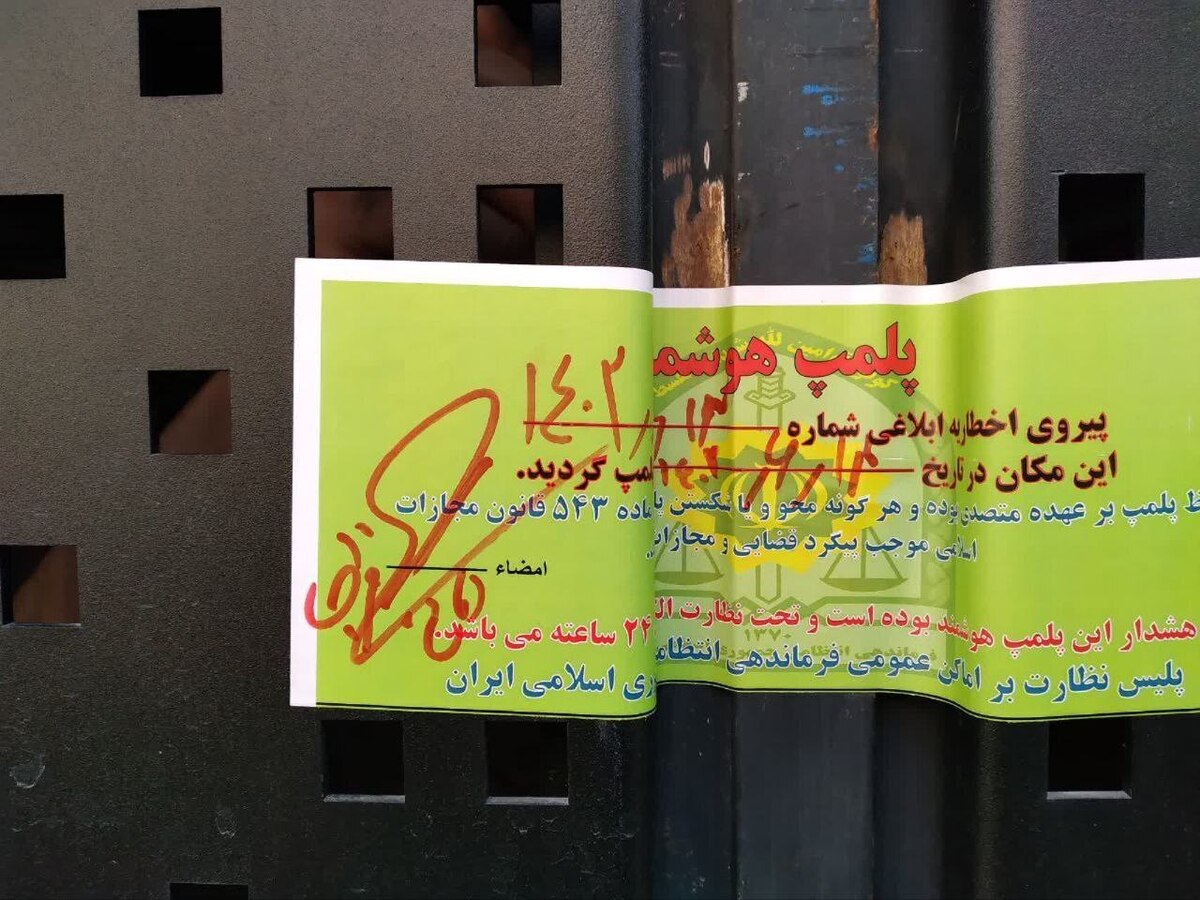 پلمپ هوشم
پیروی اخطاریه ابلاغی شماره
۱۴۰۲/۶/۱۳
این مکان در تاریخ ۱۴۰۲/۶/۱۳ لمپ گردید.
ظ پلمپ بر عهده متصدی بوده و هر گونه محو و یا شکستن پل ماده ۵۴۳ قانون مجازات
اسلامی موجب پیگرد قضایی و مجازات
امضاء
هشدار این پلمپ هوشمند بوده است و تحت نظارت الک ۲۴ ساعته می باشد.
پلیس نظارت بر اماکن عمومی فرماندهی انتظامی ری اسلامی ایران
۱۳۷۰